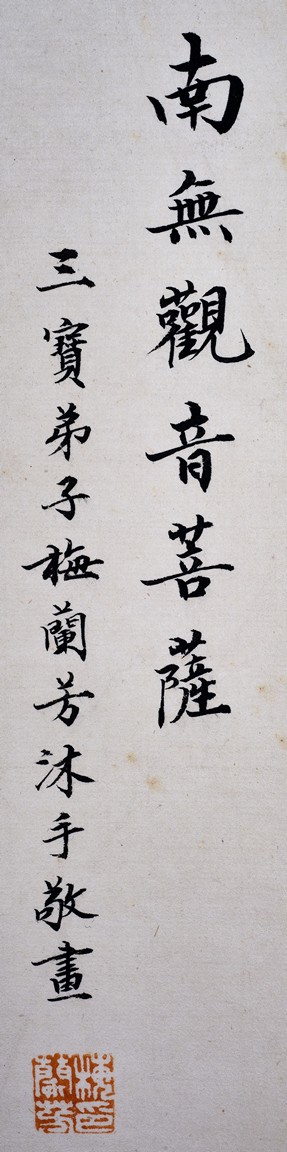 南無觀音菩薩
三寶弟子梅蘭芳沐手敬畫
梅蘭芳印